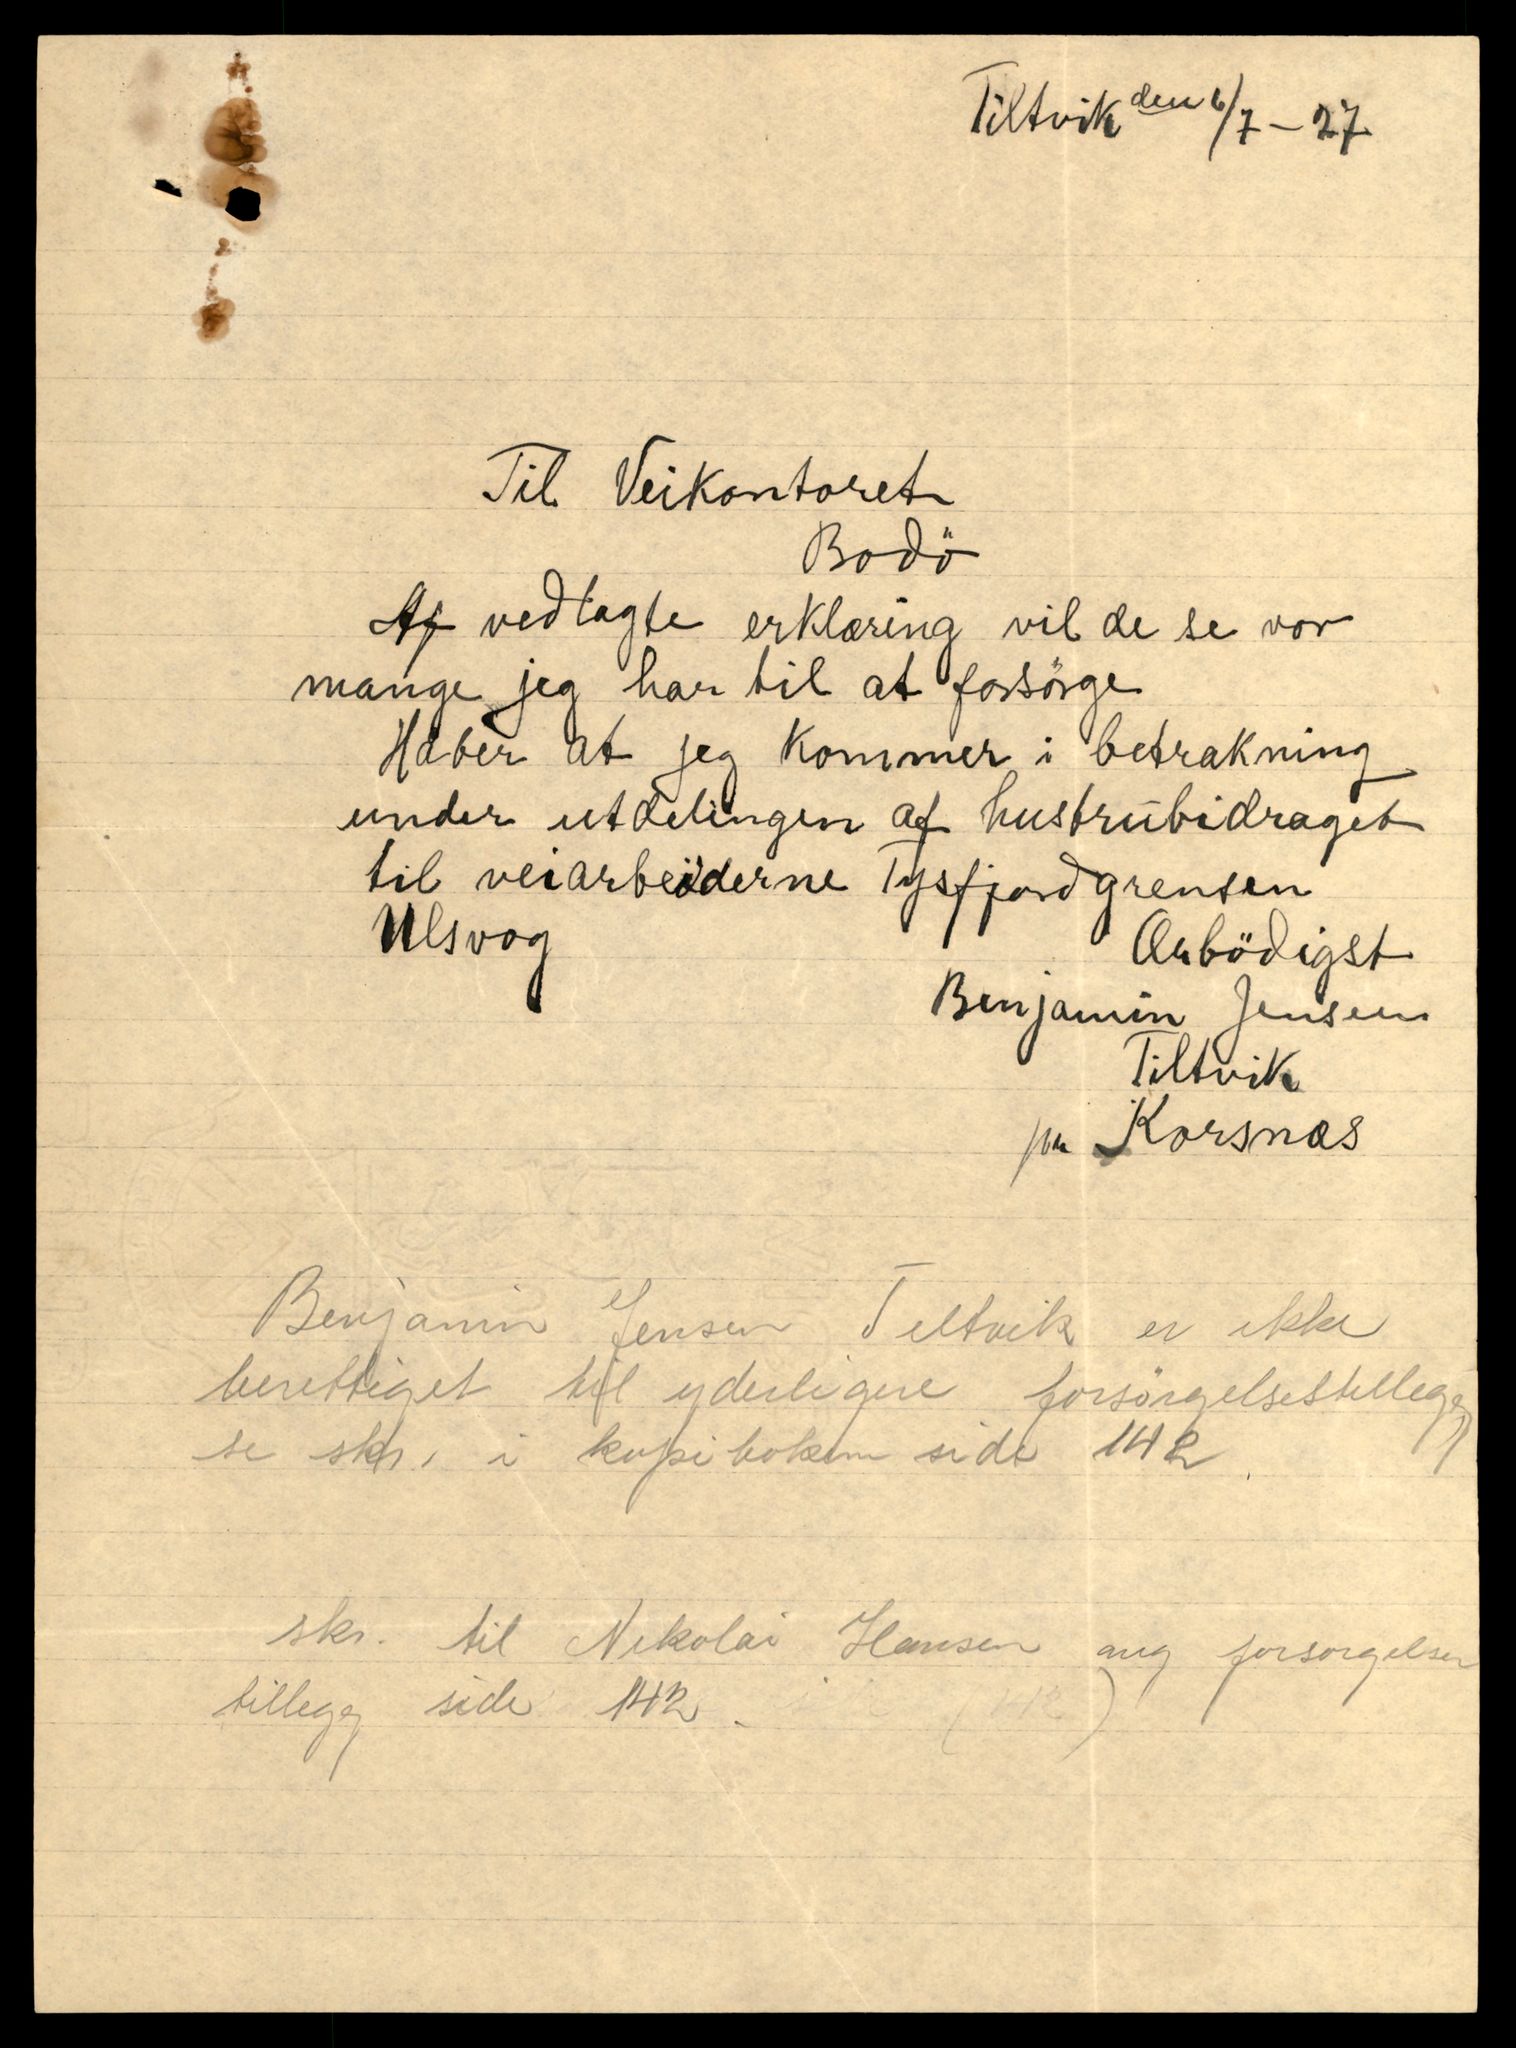 Tiltvik den 6/7 – 27
Til Veikontoret
Bodö
Af vedlagte erklæring vil de se vor
mange jeg har til at forsörge
Håber at jeg kommer i betrakning
under utdelingen af hustrubidraget
til veiarbeiderne Tysfjordgrensen
Ulsvog
Ærbödigst
Benjamin Jensen
Tiltvik
pr Korsnæs
Benjamin Jensen Teltvik er ikke
berettiget til yderligere forsörgelsestillegg
se skr. i kopiboken side 142.
skr. til Nikolai Hansen ang forsorgelses
tillegg side 142. (142)